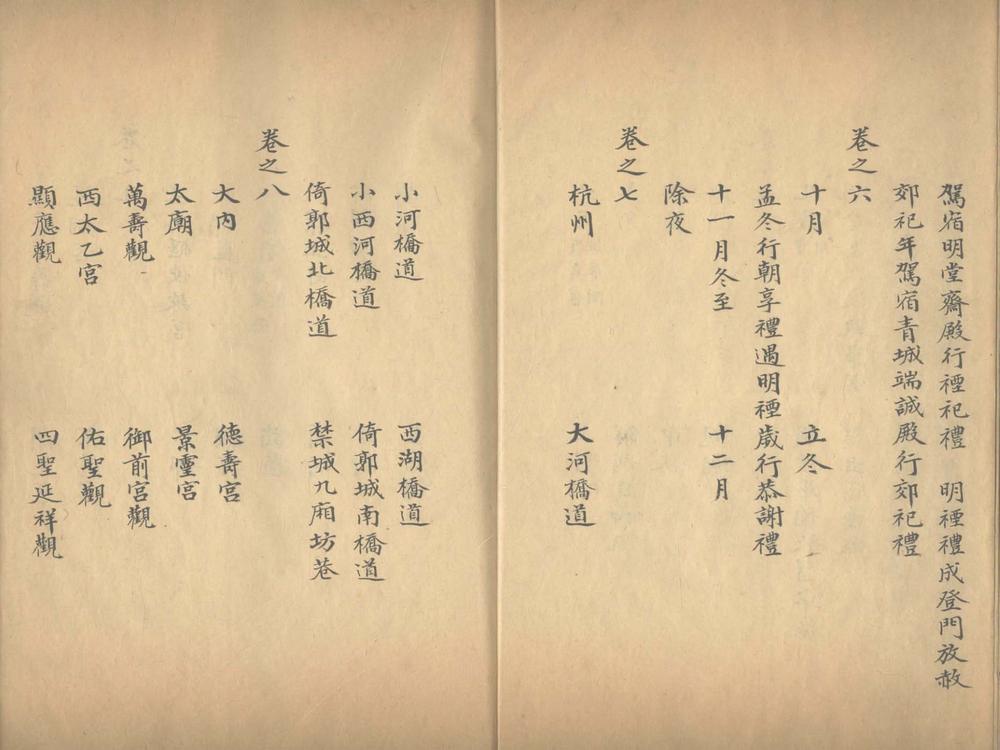 駕宿明堂齋殿行禋祀禮　明禋禮成登門放赦
郊祀年駕宿青城端誠殿行郊祀禮
卷之六
十月　立冬
孟冬行朝享禮遇明禋歲行恭謝禮
十一月冬至　十二月
除夜
卷之七
杭州　大河橋道
小河橋道　西湖橋道
小西河橋道　倚郭城南橋道
倚郭城北橋道　禁城九廂坊巷
卷之八
大內　德壽宮
太廟　景靈宮
萬壽觀　御前宮觀
西太乙宮　佑聖觀
顯應觀　四聖延祥觀